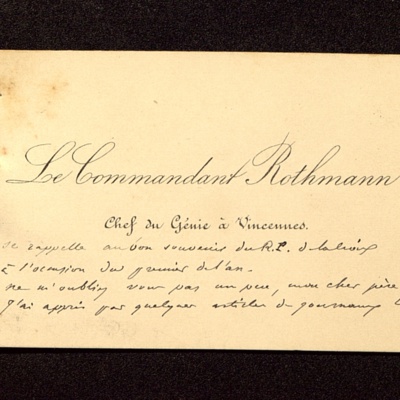 Le Commandant Rothmann
Chef du Génie à Vincennes.
se rappelle au bon souvenir du R.P. de la Croix
à l'occasion du premier de l'an.
ne m'oubliez vous pas un peu, mon cher père
J'ai appris par quelques articles de journaux